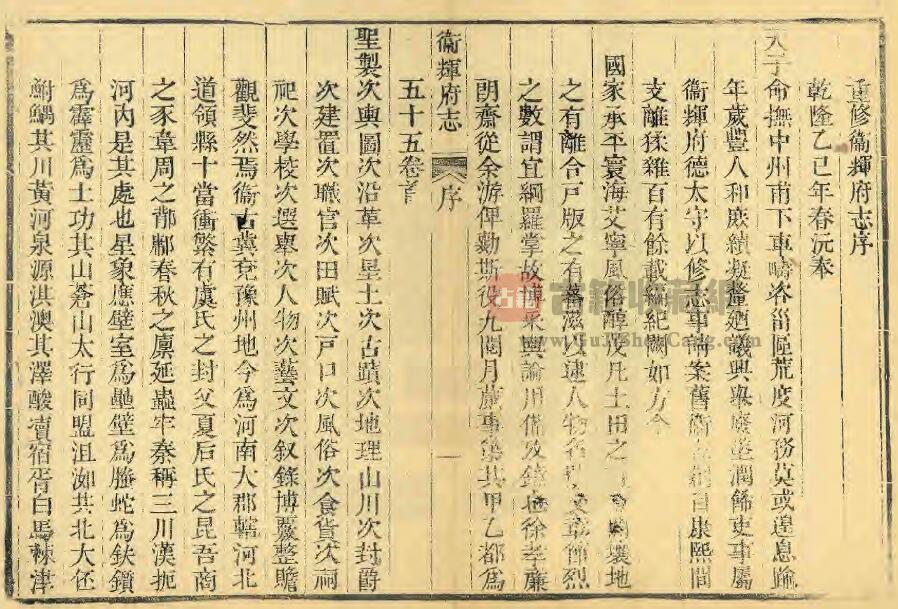 重修衞輝府志序
乾隆乙巳年春沅奉
天子命撫中州甫下車疇咨菑區荒度河務莫或遑息踰
年歲豐人和庶績凝釐廼議興舉廢墜潤飾吏事屬
衞輝府德太守以修志事請案舊衞志創自康熙間
支離猱雜百有餘載綱紀闕如方今
國家承平寰海艾寧風俗醇茂凡土田之 壤地
之有離合戶版之有蕃滋以逮人物名 文章徫烈
之數謂宜綱羅掌故博采輿論用備攷鏡 徐孝廉
朗齋從余游俾勷斯役九閱月蕆事彙其甲乙都為
五十五卷首
衞輝府志
序
一
聖製次輿圖次沿革次星土次古蹟次地理山川次封爵
次建置次職官次田賦次戶口次風俗次食貨次祠
祀次學校次選舉次人物次藝文次叙錄博覈整贍
觀斐然焉衞古冀兗豫州地今為河南大郡轄河北
道領縣十當衝繁有虞氏之封父夏后氏之昆吾商
之豕韋周之邶鄘春秋之廩延蟲牢秦稱三川漢扼
河內是其處也星象應壁室為壘壁為螣蛇為鈇鑕
為霹靂為土功其山蒼山太行同盟沮洳共北大伾
鮒鰅其川黃河泉源淇澳其澤酸棗宿胥白馬棘津
www.GuJiShouCang.com
古籍
古籍收藏網